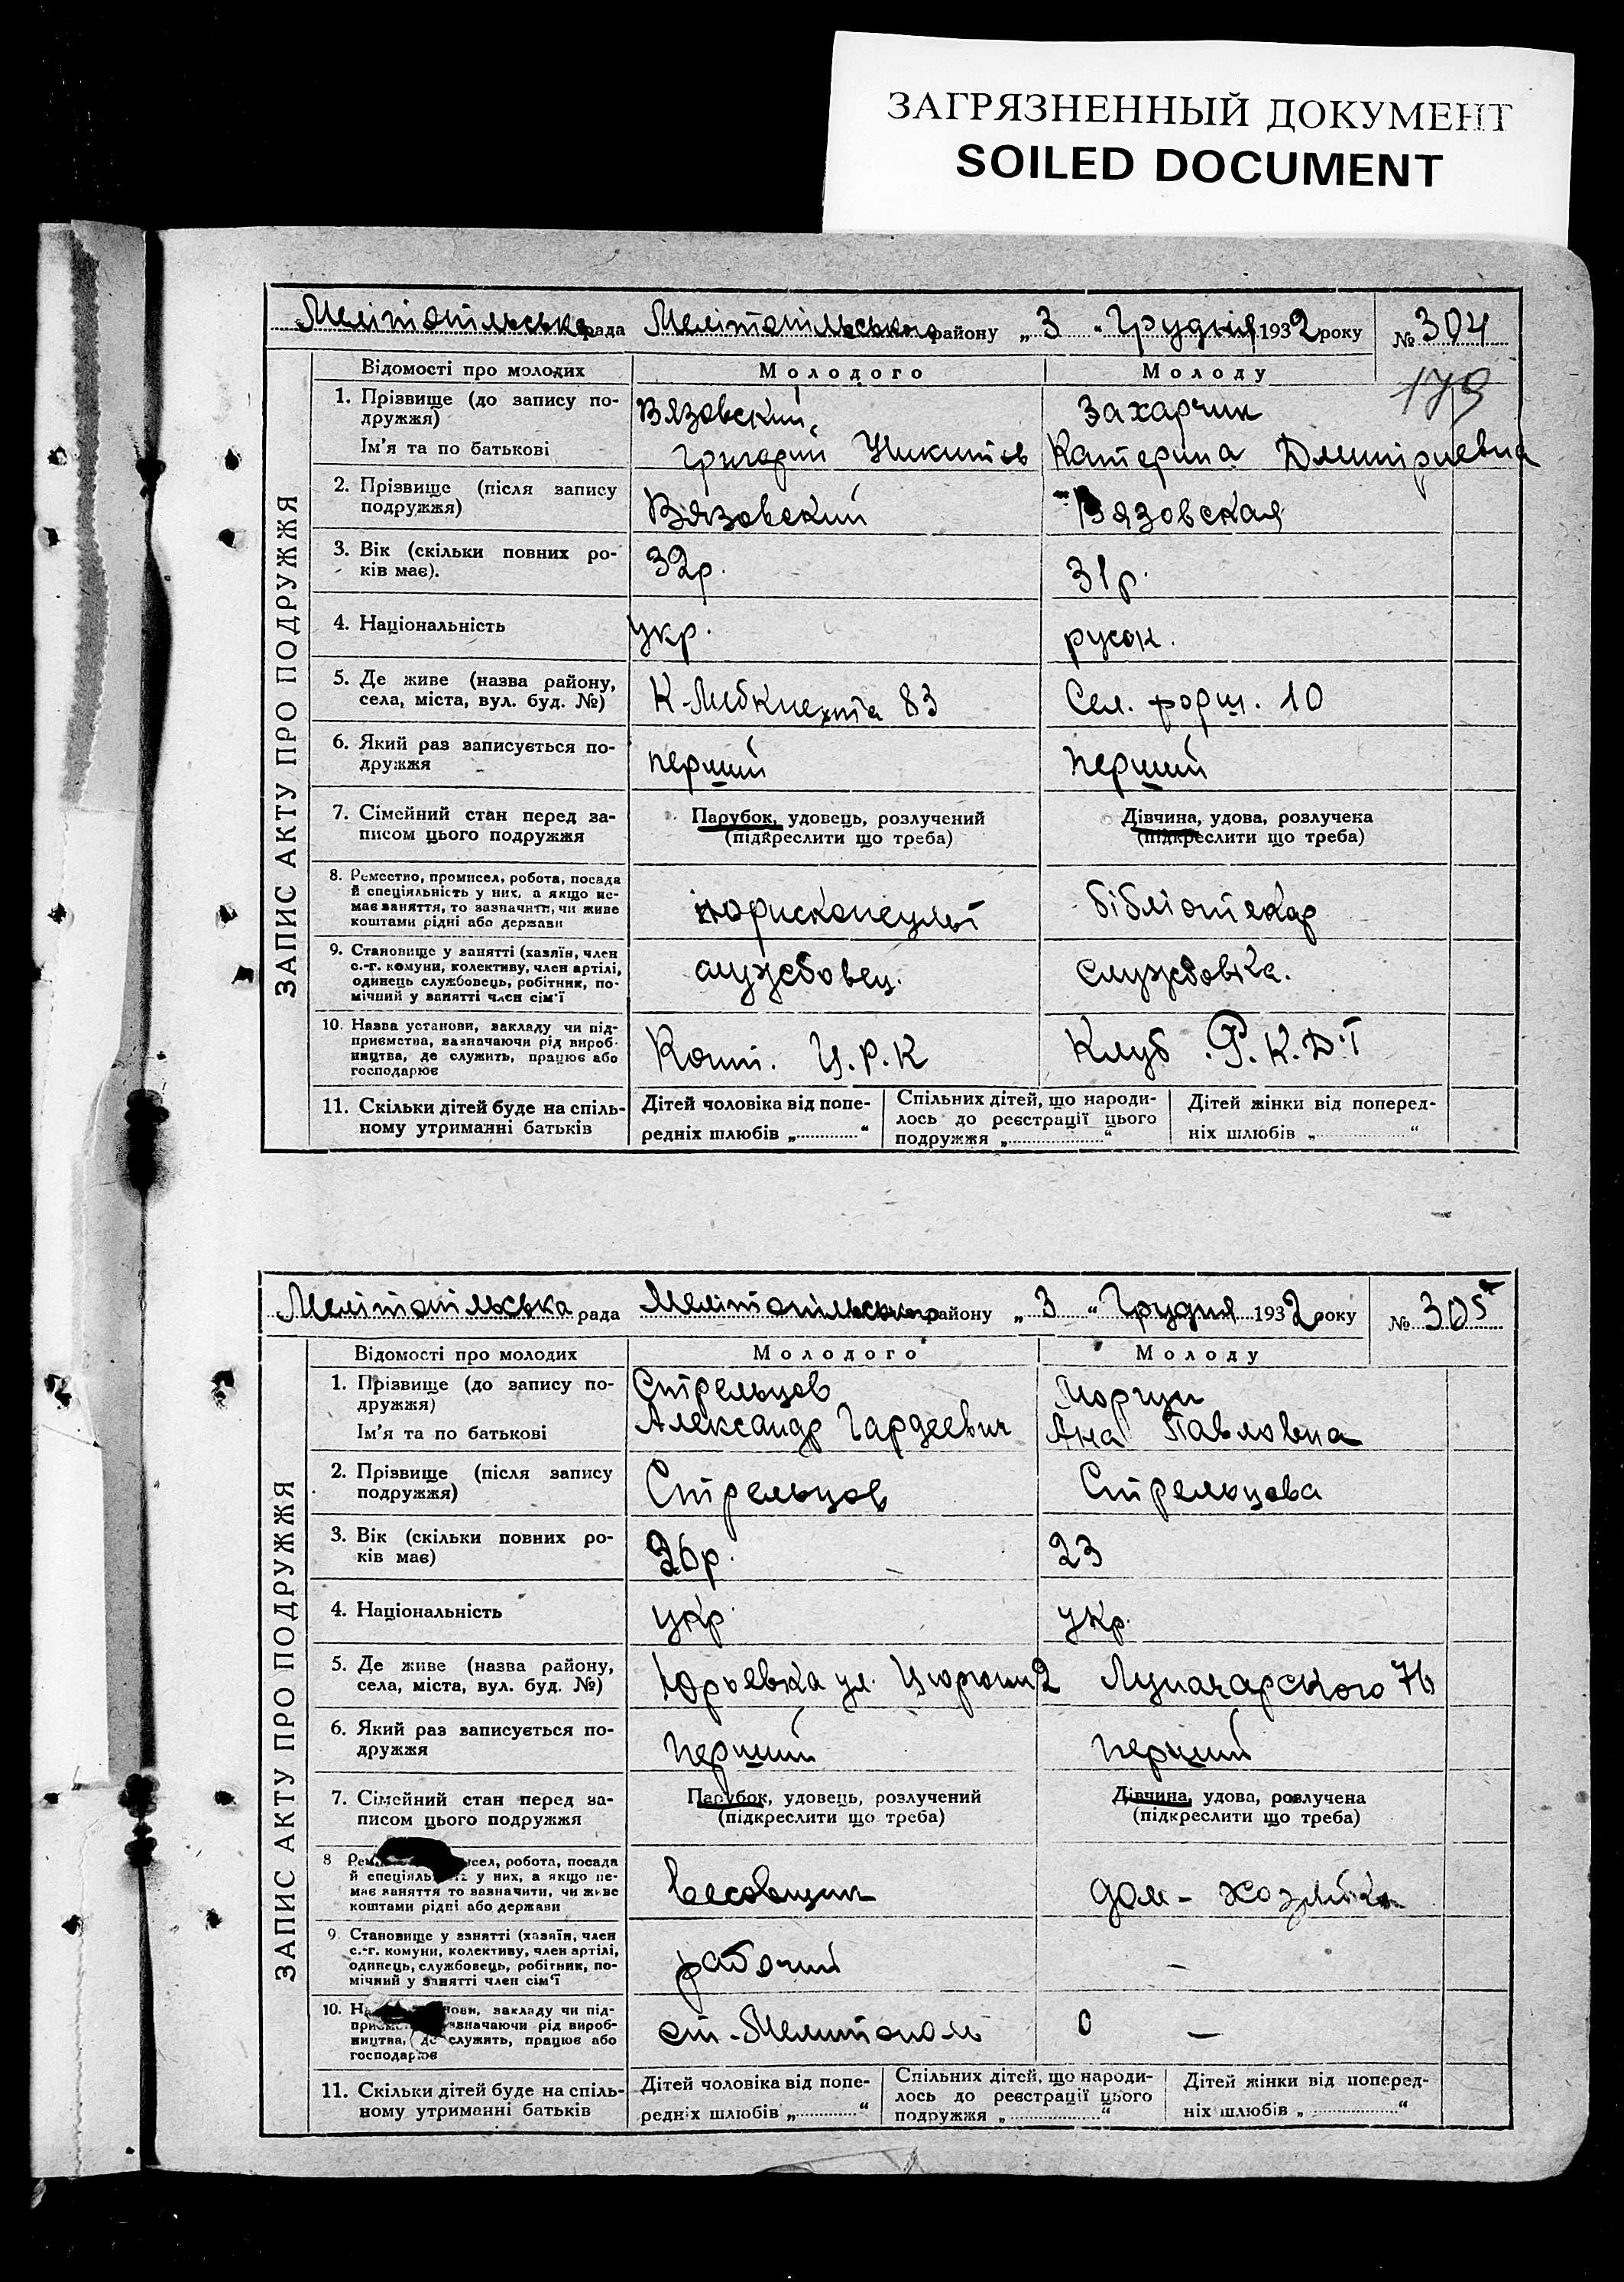 ЗАГРЯЗНЕННЫЙ ДОКУМЕНТ
SOILED DOCUMENT
Мелітопільська рада Мелітопільського району „ 3 “ Грудня 1932 року № 304
179
ЗАПИС АКТУ ПРО ПОДРУЖЖЯ
Відомості про молодих Молодого Молоду
1. Прізвище (до запису по-
дружжя) Вязовский Захарчик
Ім'я та по батькові Григорий Никитов Катерина Дмитриевна
2. Прізвище (після запису
подружжя) Вязовский Вязовская
3. Вік (скільки повних ро-
ків має). 32р. 31р.
4. Національність укр. русск.
5. Де живе (назва району,
села, міста, вул. буд. №) К-Либкнехта 83 Сел. 10
6. Який раз записується по-
дружжя перший перший
7. Сімейний стан перед за-
писом цього подружжя
Парубок, удовець, розлучений
(підкреслити що треба)
Дівчина, удова, розлучена
(підкреслити що треба)
8. Ремество, промисел, робота, посада
й спеціяльність у них, а якщо не-
має заняття, то зазначити, чи живе
коштами рідні або держави
юрисконсульт бібліотекар
9. Становище у занятті (хазяїн, член
с.-г. комуни, колективу, член артілі,
одинець службовець, робітник, по-
мічний у занятті член сім'ї
службовец. службовка.
10. Назва установи, закладу чи під-
приємства, зазначаючи рід вироб-
ництва, де служить, працює або
господарює
Ц.Р.К Клуб Р.К.Д.Т
11. Скільки дітей буде на спіль-
ному утриманні батьків
Дітей чоловіка від попе-
редніх шлюбів „ “
Спільних дітей, що народи-
лось до реєстрації цього
подружжя „ “
Дітей жінки від поперед-
ніх шлюбів „ “
Мелітопільська рада Мелітопільського району „ 3 “ Грудня 1932 року № 305
ЗАПИС АКТУ ПРО ПОДРУЖЖЯ
Відомості про молодих Молодого Молоду
1. Прізвище (до запису по-
дружжя) Стрельцов
Ім'я та по батькові Александр Гардеевич Ана Павловна
2. Прізвище (після запису
подружжя) Стрельцов Стрельцова
3. Вік (скільки повних ро-
ків має) 26р. 23
4. Національність укр. укр.
5. Де живе (назва району,
села, міста, вул. буд. №) Юрьевка ул. 2 Луначарского 76
6. Який раз записується по-
дружжя перший перший
7. Сімейний стан перед за-
писом цього подружжя
Парубок, удовець, розлучений
(підкреслити що треба)
Дівчина, удова, розлучена
(підкреслити що треба)
8 робота, посада
й у них, а якщо не-
має заняття то зазначити, чи живе
коштами рідні або держави
весовщик дом-хозяйка
9. Становище у занятті (хазяїн, член
с.-г. комуни, колективу, член артілі,
одинець, службовець, робітник, по-
мічний у занятті член сім'ї
рабочий –
10. закладу чи під-
зазначаючи рід вироб-
ництва, де служить, працює або
господарює
ст-Мелитополь 0 –
11. Скільки дітей буде на спіль-
ному утриманні батьків
Дітей чоловіка від попе-
редніх шлюбів „ “
Спільних дітей, що народи-
лось до реєстрації цього
подружжя „ “
Дітей жінки від поперед-
ніх шлюбів „ “